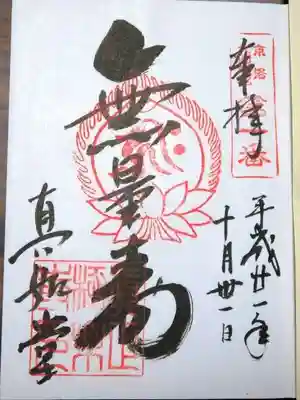 奉拝
平成廿一年
十月卅一日
無量寿
真如堂